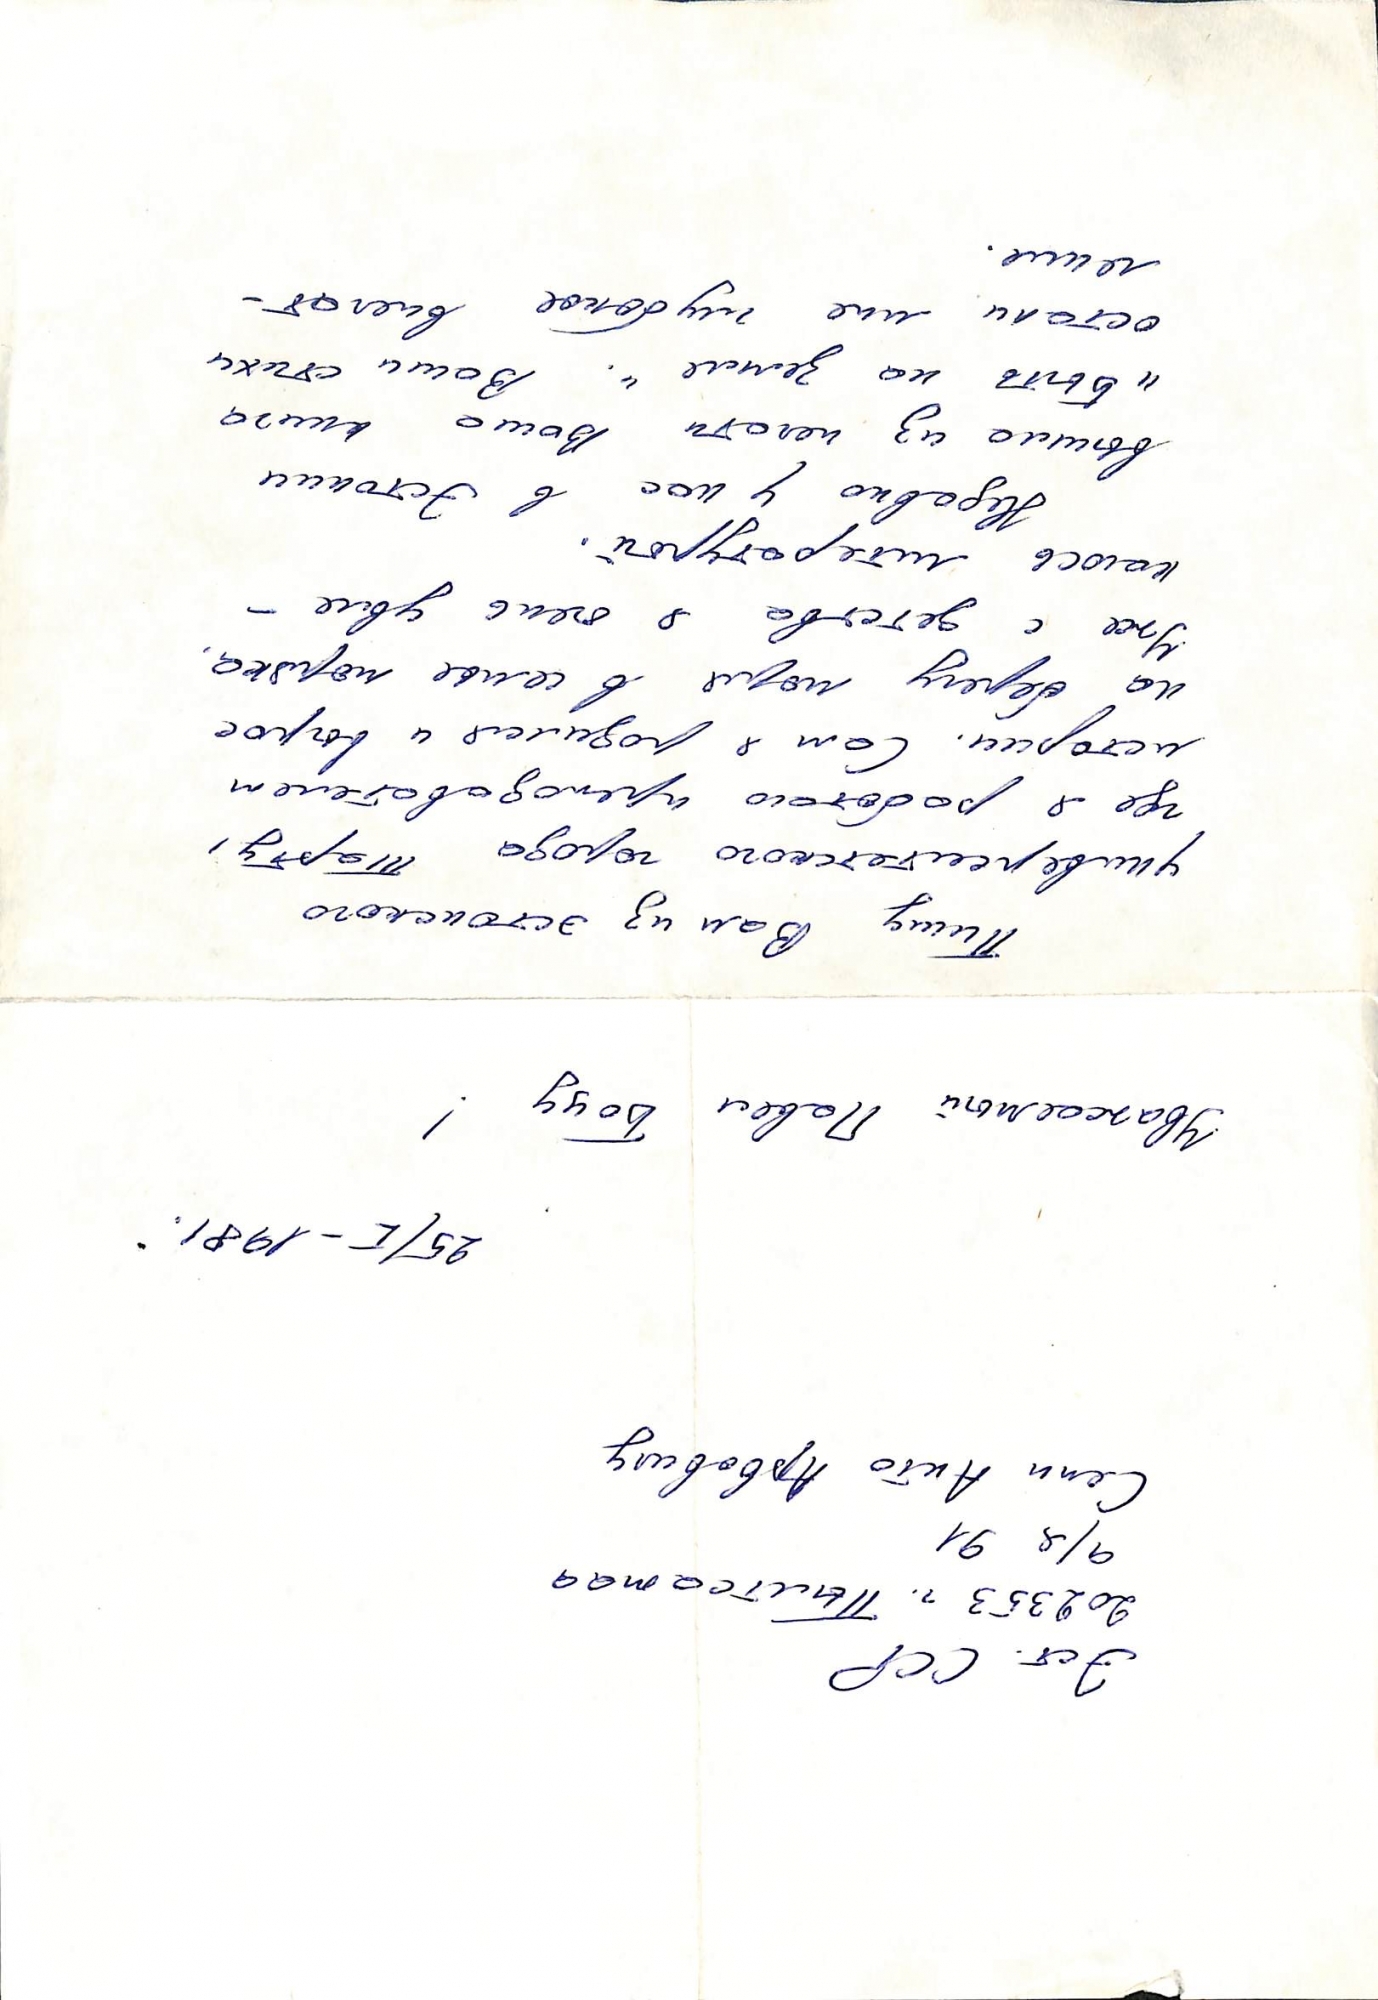 Эст. ССР
202353 г. Пылтсамаа
а/я 91
Сепп Анто Арвовичу
25/I – 1981.
Уважаемый Павел Боцу !
Пишу Вам из эстонского
университетского города Тарту,
где я работаю преподавателем
истории. Сам я родился и вырос
на берегу моря в семье моряка.
Уже с детства я очень увле –
калось литературой.
Недавно у нас в Эстонии
вышла из печати Ваша книга
„Быть на земле“. Ваши стихи
остали мне глубокое впечат –
ление.